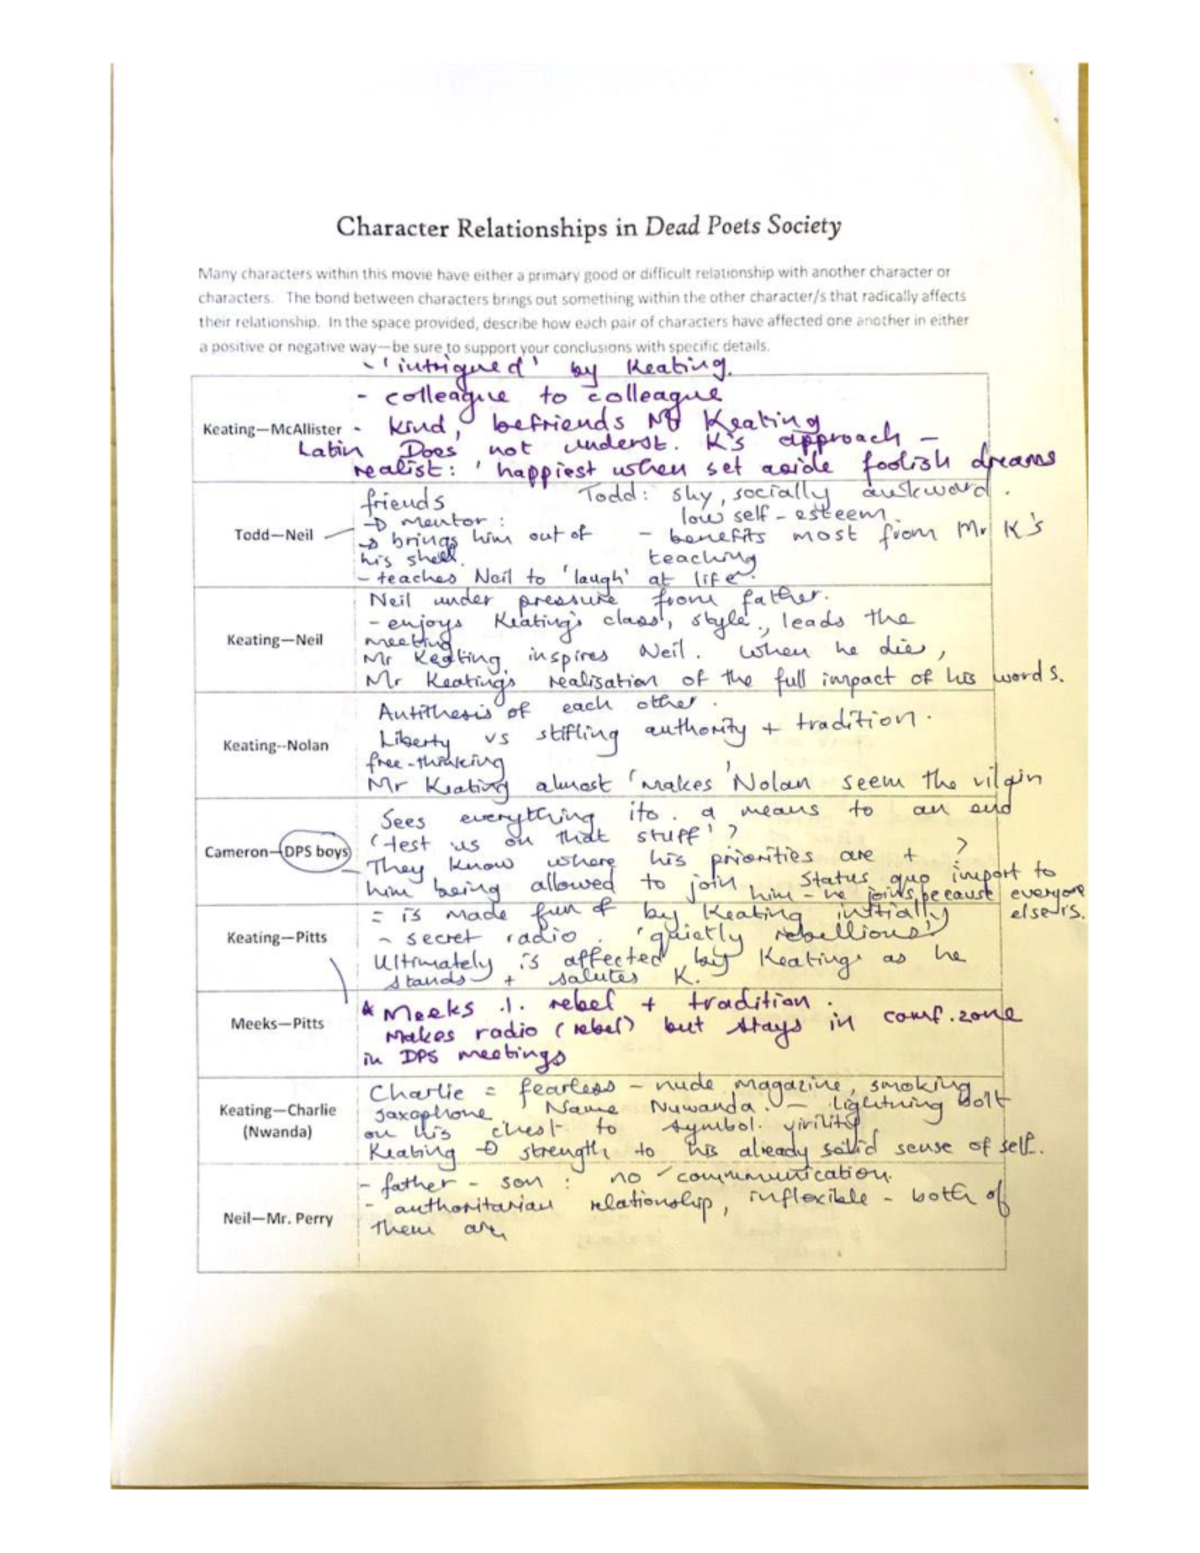 Character Relationships in Dead Poets Society
Many characters within this movie have either a primary good or difficult relationship with another character or
characters. The bond between characters brings out something within the other character/s that radically affects
their relationship. In the space provided, describe how each pair of characters have affected one another in either
a positive or negative way—be sure to support your conclusions with specific details.
- 'intrigued' by Keating.
- colleague to colleague
Keating—McAllister - kind, befriends Mr Keating
Latin Does not underst. K's approach -
realist: 'happiest when set aside foolish dreams
friends Todd: shy, socially awkward.
→ mentor: low self-esteem.
Todd—Neil → brings him out of - benefits most from Mr K's
his shell. teaching
- teaches Neil to 'laugh' at life.
Neil under pressure from father.
- enjoys Keating's class, style, leads the
Keating—Neil meeting
Mr Keating inspires Neil. When he dies,
Mr Keating's realisation of the full impact of his words.
Antithesis of each other.
Liberty vs stifling authority + tradition.
Keating--Nolan free-thinking
Mr Keating almost 'makes' Nolan seem the vilain
Sees everything ito. a means to an end
'test us on that stuff'?
Cameron—DPS boys They know where his priorities are + ?
him being allowed to join Status quo import to
him - he joins because everyone
else is.
= is made fun of by Keating initially
Keating—Pitts - secret radio. 'quietly rebellious'
Ultimately is affected by Keating as he
stands + salutes K.
* Meeks .1. rebel + tradition.
Meeks—Pitts Makes radio (rebel) but stays in comf.zone
in DPS meetings
Charlie = fearless - nude magazine, smoking
Keating—Charlie saxophone, Name Nuwanda. - Lightning bolt
(Nwanda) on his chest to symbol. virility
Keating → strength to his already solid sense of self.
- father - son: no communication.
- authoritarian relationship, inflexible - both of
Neil—Mr. Perry them are